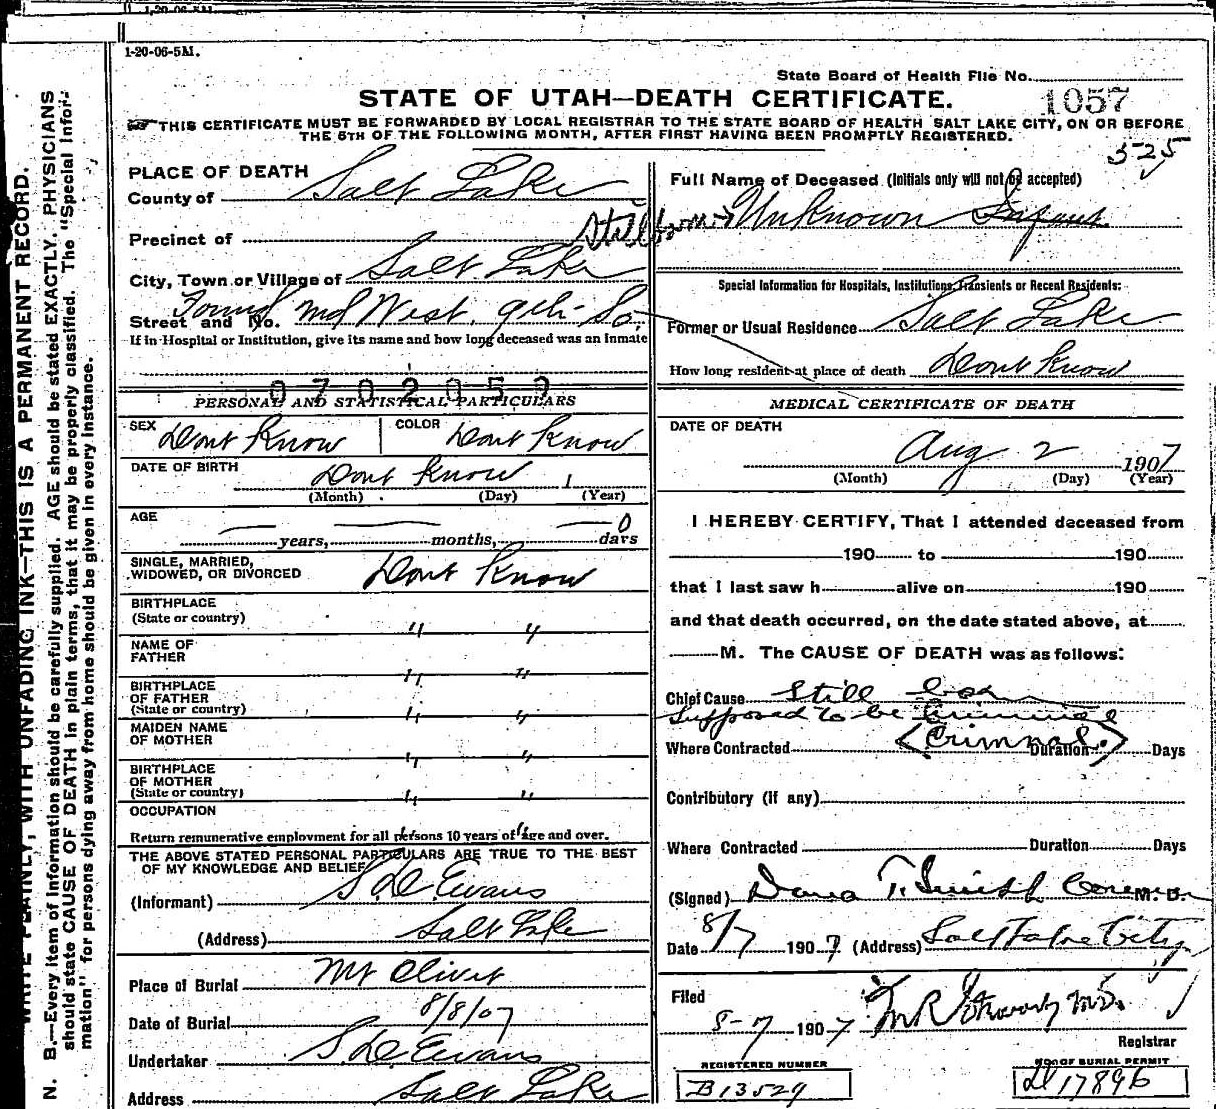 1-20-06-5M.
1-20-06-5M.
State Board of Health File No.
1057
STATE OF UTAH—DEATH CERTIFICATE.
THIS CERTIFICATE MUST BE FORWARDED BY LOCAL REGISTRAR TO THE STATE BOARD OF HEALTH SALT LAKE CITY, ON OR BEFORE
THE 5TH OF THE FOLLOWING MONTH, AFTER FIRST HAVING BEEN PROMPTLY REGISTERED.
525
PLACE OF DEATH
County of Salt Lake
Precinct of
City, Town or Village of Salt Lake
Street and No. Found West 9th So.
If in Hospital or Institution, give its name and how long deceased was an inmate
0702057
PERSONAL AND STATISTICAL PARTICULARS
SEX Dont Know COLOR Dont Know
DATE OF BIRTH Dont Know 1
(Month) (Day) (Year)
AGE — years, — months, — 0 days
SINGLE, MARRIED,
WIDOWED, OR DIVORCED Dont Know
BIRTHPLACE
(State or country) " "
NAME OF
FATHER " "
BIRTHPLACE
OF FATHER
(State or country) " "
MAIDEN NAME
OF MOTHER " "
BIRTHPLACE
OF MOTHER
(State or country) " "
OCCUPATION
Return remunerative employment for all persons 10 years of age and over. " "
THE ABOVE STATED PERSONAL PARTICULARS ARE TRUE TO THE BEST
OF MY KNOWLEDGE AND BELIEF
(Informant) S. D. Evans
(Address) Salt Lake
Place of Burial Mt Olivet
Date of Burial 8/8/07
Undertaker S. D. Evans
Address Salt Lake
Full Name of Deceased (Initials only will not be accepted)
Stillborn Unknown Infant
Special Information for Hospitals, Institutions, Transients or Recent Residents:
Former or Usual Residence Salt Lake
How long resident at place of death Dont Know
MEDICAL CERTIFICATE OF DEATH
DATE OF DEATH
Aug 2 1907
(Month) (Day) (Year)
I HEREBY CERTIFY, That I attended deceased from
190 to 190
that I last saw h alive on 190
and that death occurred, on the date stated above, at
M. The CAUSE OF DEATH was as follows:
Chief Cause Still born
Supposed to be Criminal
Where Contracted (Criminal.) Duration Days
Contributory (if any)
Where Contracted Duration Days
(Signed) Dana T. Smith Coroner M. D.
Date 8/7 1907 (Address) Salt Lake City
Filed
8-7 1907 M.D.
Registrar
REGISTERED NUMBER
B13529
NO. OF BURIAL PERMIT
17896
WRITE PLAINLY, WITH UNFADING INK—THIS IS A PERMANENT RECORD.
N. B.—Every item of information should be carefully supplied. AGE should be stated EXACTLY. PHYSICIANS
should state CAUSE OF DEATH in plain terms, that it may be properly classified. The "Special Infor-
mation" for persons dying away from home should be given in every instance.